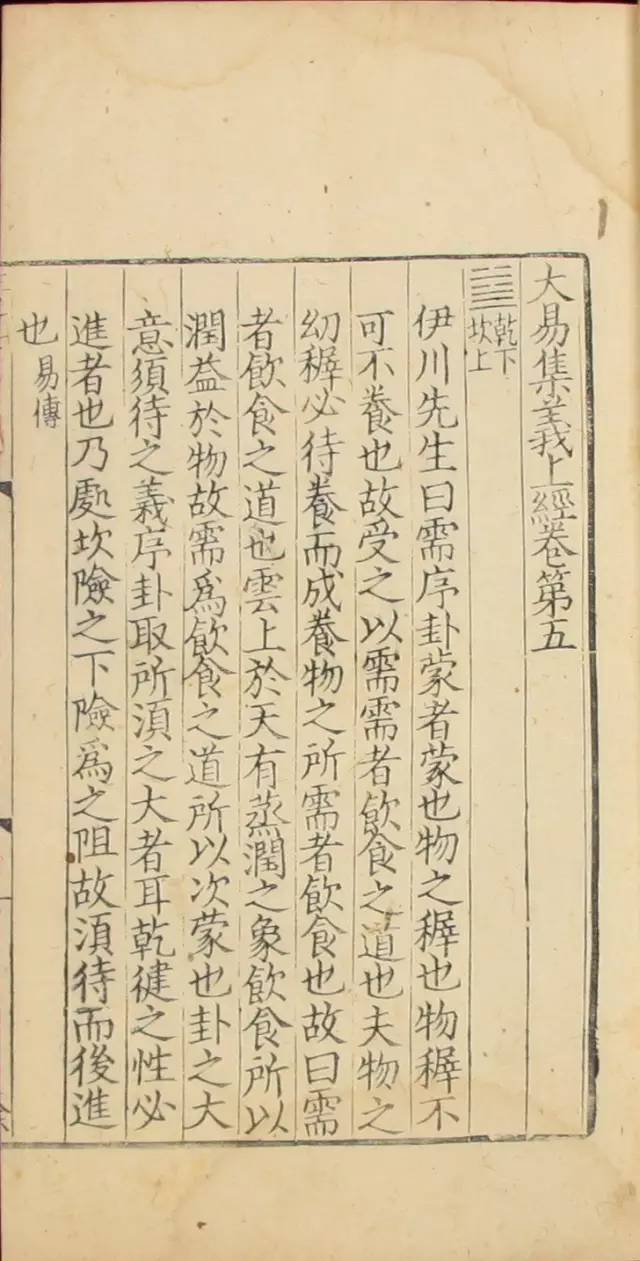 大易集義上經卷第五
乾下
坎上
伊川先生曰需序卦蒙者蒙也物之稺也物稺不
可不養也故受之以需需者飲食之道也夫物之
幼稺必待養而成養物之所需者飲食也故曰需
者飲食之道也雲上於天有蒸潤之象飲食所以
潤益於物故需為飲食之道所以次蒙也卦之大
意須待之義序卦取所湏之大者耳乾健之性必
進者也乃處坎險之下險為之阻故湏待而後進
也易傳